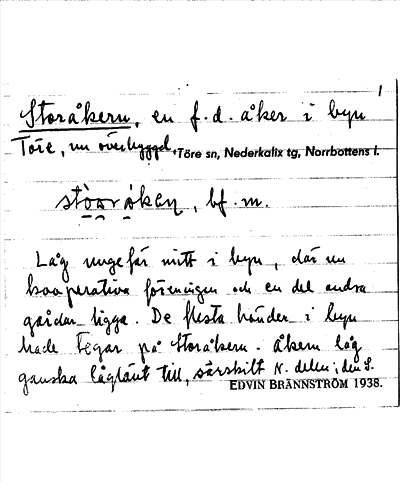 1
Storåkern, en f.d. åker i byn
Töre, nu överbyggd. Töre sn, Nederkalix tg, Norrbottens l.
bf. m.
Låg ungefär mitt i byn, där nu
kooperativa föreningen och en del andra
gårdar ligga. De flesta bönder i byn
hade tegar på Storåkern. Åkern låg
ganska låglänt till, särskilt N. delen i den S.
EDVIN BRÄNNSTRÖM 1938.